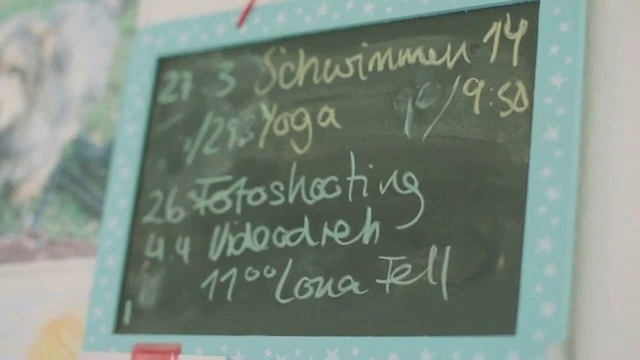 27.3 Schwimmen 14
/29.3 Yoga 9:50
26 Fotoshooting
4.4 Videodreh
11⁰⁰ Lona Fell